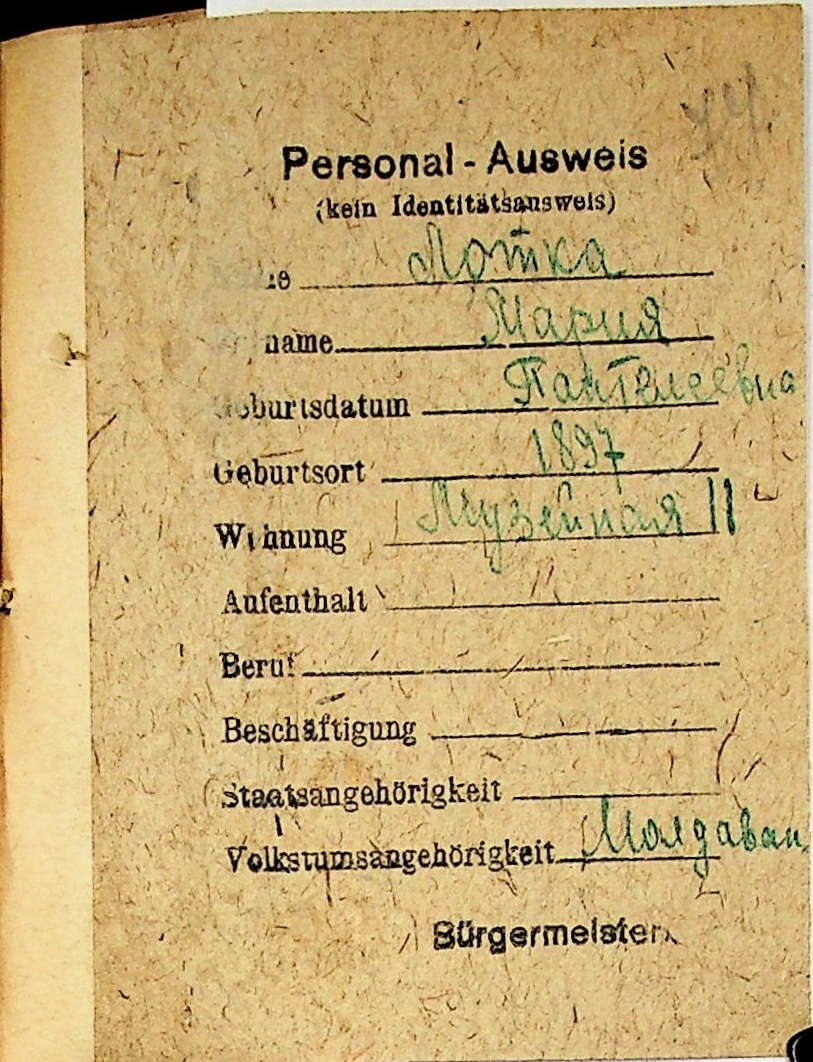 74
Personal - Ausweis
(kein Identitätsausweis)
Лотка
name Мария
Geburtsdatum Пантелеевна
Geburtsort 1897
Wohnung Музейная 11
Aufenthalt
Beruf
Beschäftigung
Staatsangehörigkeit
Volkstumsangehörigkeit Малдаван
Bürgermeister